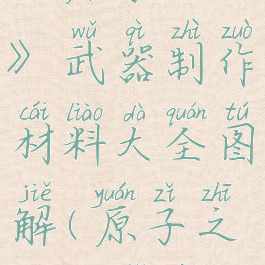 wǔ qì zhì zuò
》 武器制作
cái liào dà quán tú
材料大全图
jiě yuán zǐ zhī
解(原子之